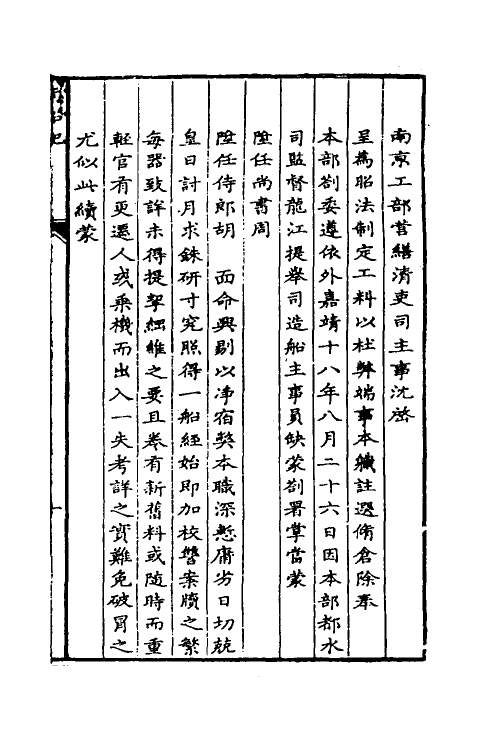 南京工部營繕清吏司主事沈𢽾
呈爲昭法制定工料以杜弊端事本職註選脩倉除奉
本部劄委遵依外嘉靖十八年八月二十六日因本部都水
司監督龍江提舉司造船主事員缺蒙劄署掌當蒙
陞任尚書周
陞任侍郎胡　面命興剔以净宿獘本職深慙庸劣日切兢
皇日討月求銖研寸究照得一船經始即加校讐案牘之繁
每器致詳未得提挈綱維之要且卷有新舊料或随時而重
輕官有更還人或乘機而出入一失考詳之實難免破冒之
尤似此續蒙